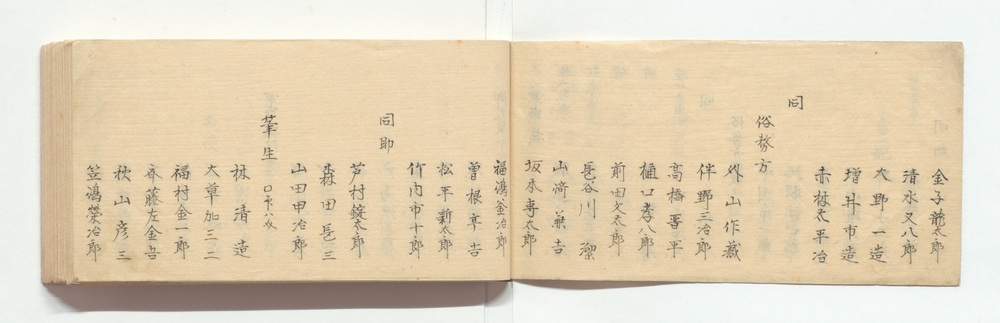 金子龍太郎
清水又八郎
大野一造
増井市造
赤林文平治
同
俗務方
外山作蔵
伴野三治郎
高橋晋平
樋口孝八郎
前田文太郎
長谷川潔
山𥔎兼吉
坂本専太郎
福嶋釜治郎
曽根幸吉
松平新太郎
竹内市十郎
同助
芦村錠太郎
森田長三
山田甲治郎
筆生
林清造
大草加三二
福村金一郎
斎藤左金吾
秋山彦三
笠嶋榮治郎